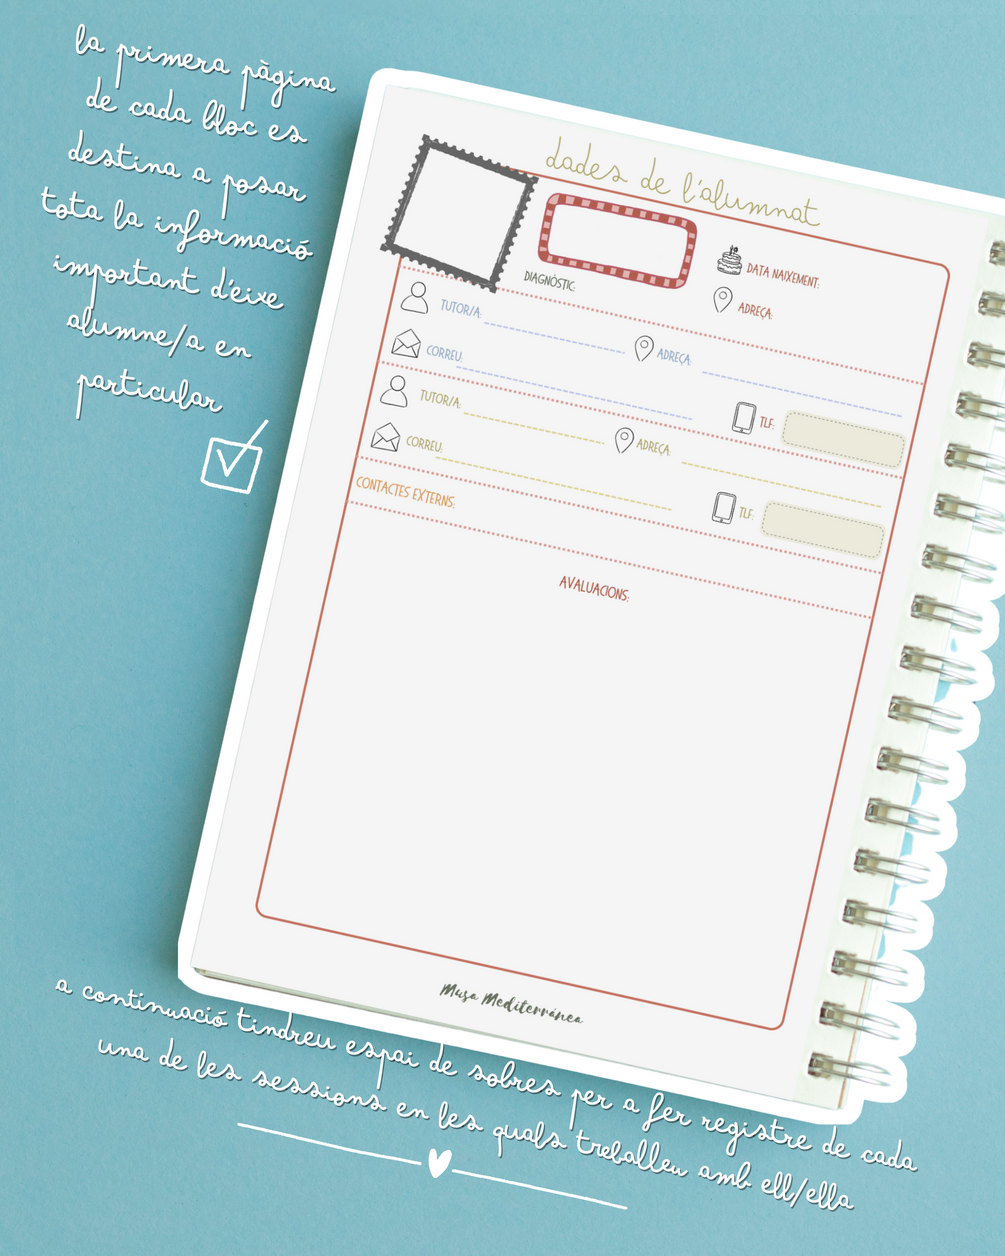 la primera pàgina
de cada bloc es
destina a posar
tota la informació
important d'eixe
alumne/a en
particular
dades de l'alumnat
DATA NAIXEMENT:
DIAGNÒSTIC:
ADREÇA:
TUTOR/A:
ADREÇA:
CORREU:
TLF:
TUTOR/A:
ADREÇA:
CORREU:
TLF:
CONTACTES EXTERNS:
AVALUACIONS:
Musa Mediterránea
a continuació tindreu espai de sobres per a fer registre de cada
una de les sessions en les quals treballeu amb ell/ella